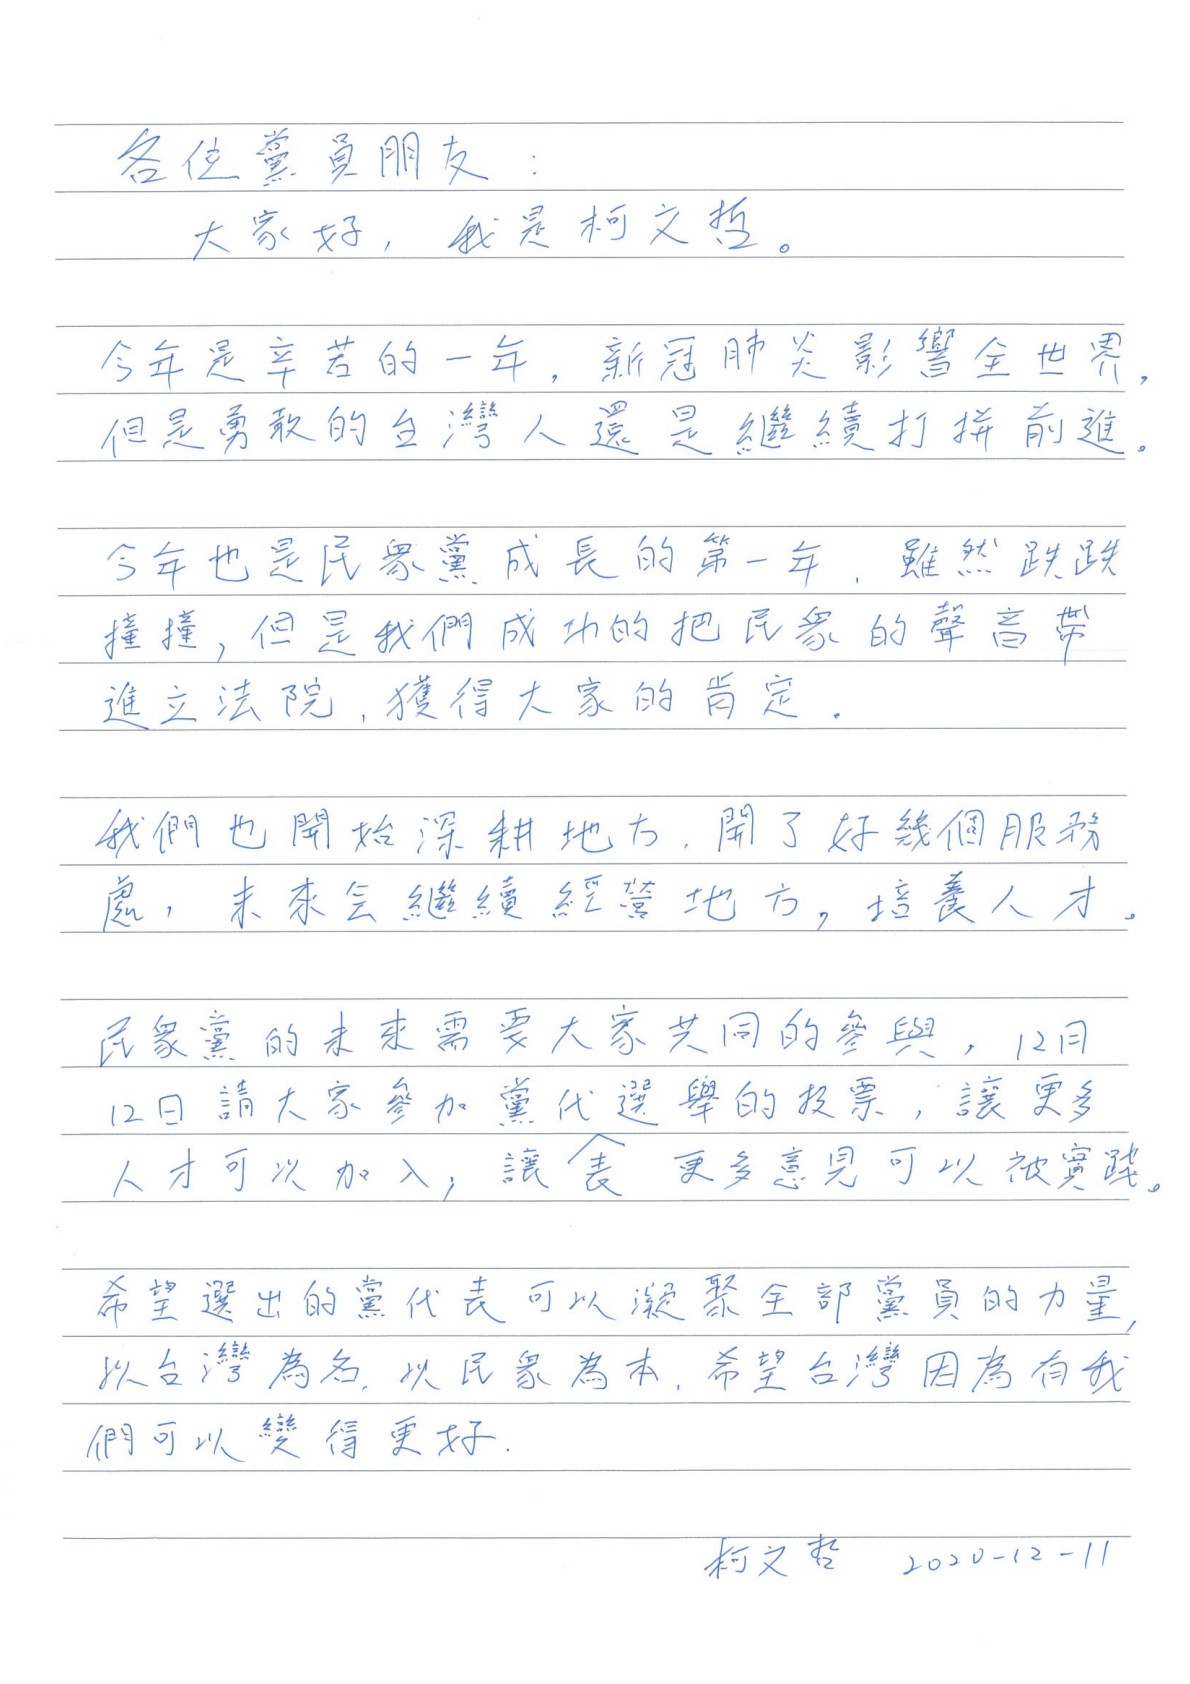 各位黨員朋友：
大家好，我是柯文哲。
今年是辛苦的一年，新冠肺炎影響全世界，
但是勇敢的台灣人還是繼續打拼前進。
今年也是民眾黨成長的第一年，雖然跌跌
撞撞，但是我們成功的把民眾的聲音帶
進立法院，獲得大家的肯定.
我們也開始深耕地方，開了好幾個服務
處，未來會繼續經營地方，培養人才。
民眾黨的未來需要大家共同的參與，12月
12日請大家參加黨代選舉的投票，讓更多
人才可以加入，讓更多意見可以被實踐。
希望選出的黨代表可以凝聚全部黨員的力量，
以台灣為名，以民眾為本，希望台灣因為有我
們可以變得更好.
柯文哲 2020-12-11